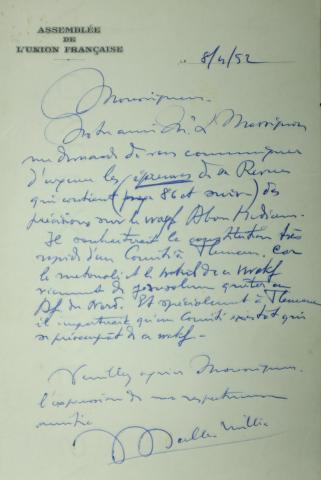 ASSEMBLÉE
DE
L'UNION FRANÇAISE
8/4/52
Monseigneur.
Notre ami Mr L Massignon
me demande de vous communiquer
d'urgence les épreuves de sa Revue
qui contient (page 86 et suiv) des
précisions sur le waqf Abou Médien.
Il souhaiterait la constitution très
rapide d'un Comité à Tlemcen, car
le et le de ce waqf
viennent de Jérusalem quêter en
Af. du Nord. Et spécialement à Tlemcen
il importerait qu'un Comité existât qui
se préoccupât de ce waqf.
Veuillez agréer Monseigneur
l'expression de mes respectueux